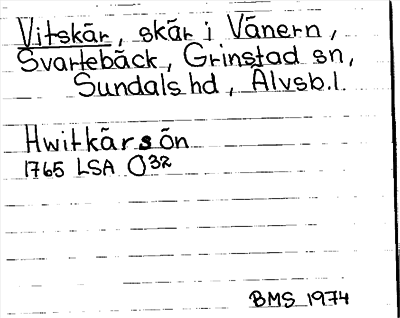 Vitskär, skär i Vänern,
Svartebäck, Grinstad sn,
Sundals hd, Älvsb.l.
Hwitkärsön
1765 LSA O32
BMS 1974